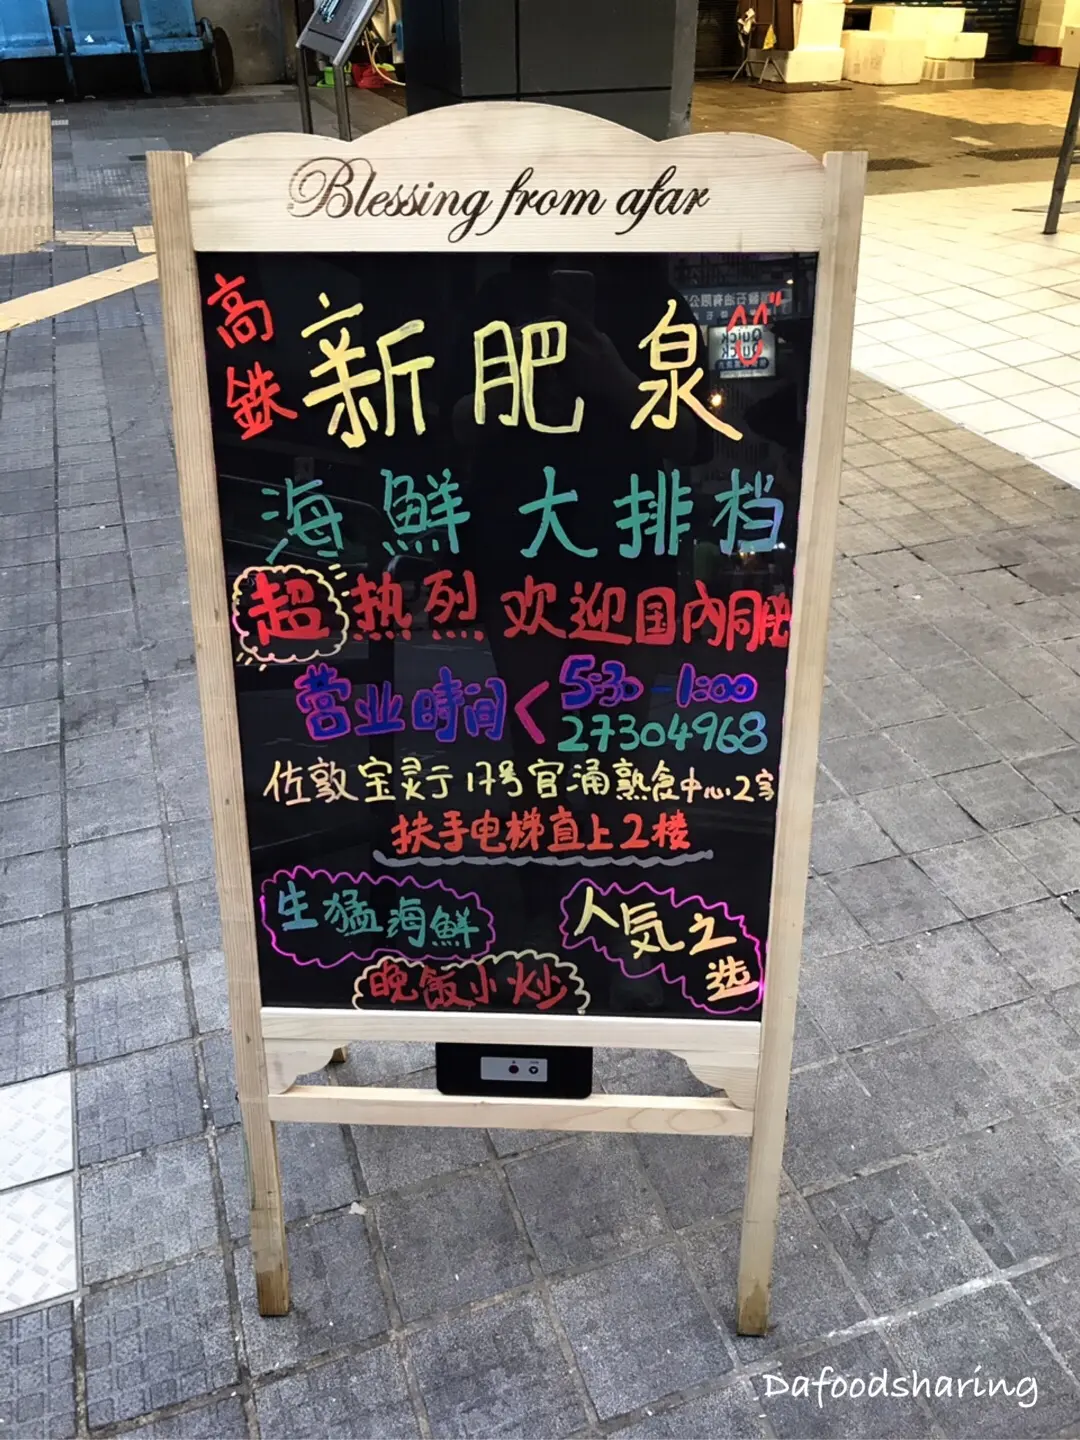 Blessing from afar
高鉄
新肥泉
海鮮大排档
超热烈欢迎国内同胞
营业時间< 5:30-1:00
27304968
佐敦宝灵厅17号官涌熟食中心2家
扶手电梯直上2楼
生猛海鮮
人気之选
晚飯小炒
Dafoodsharing